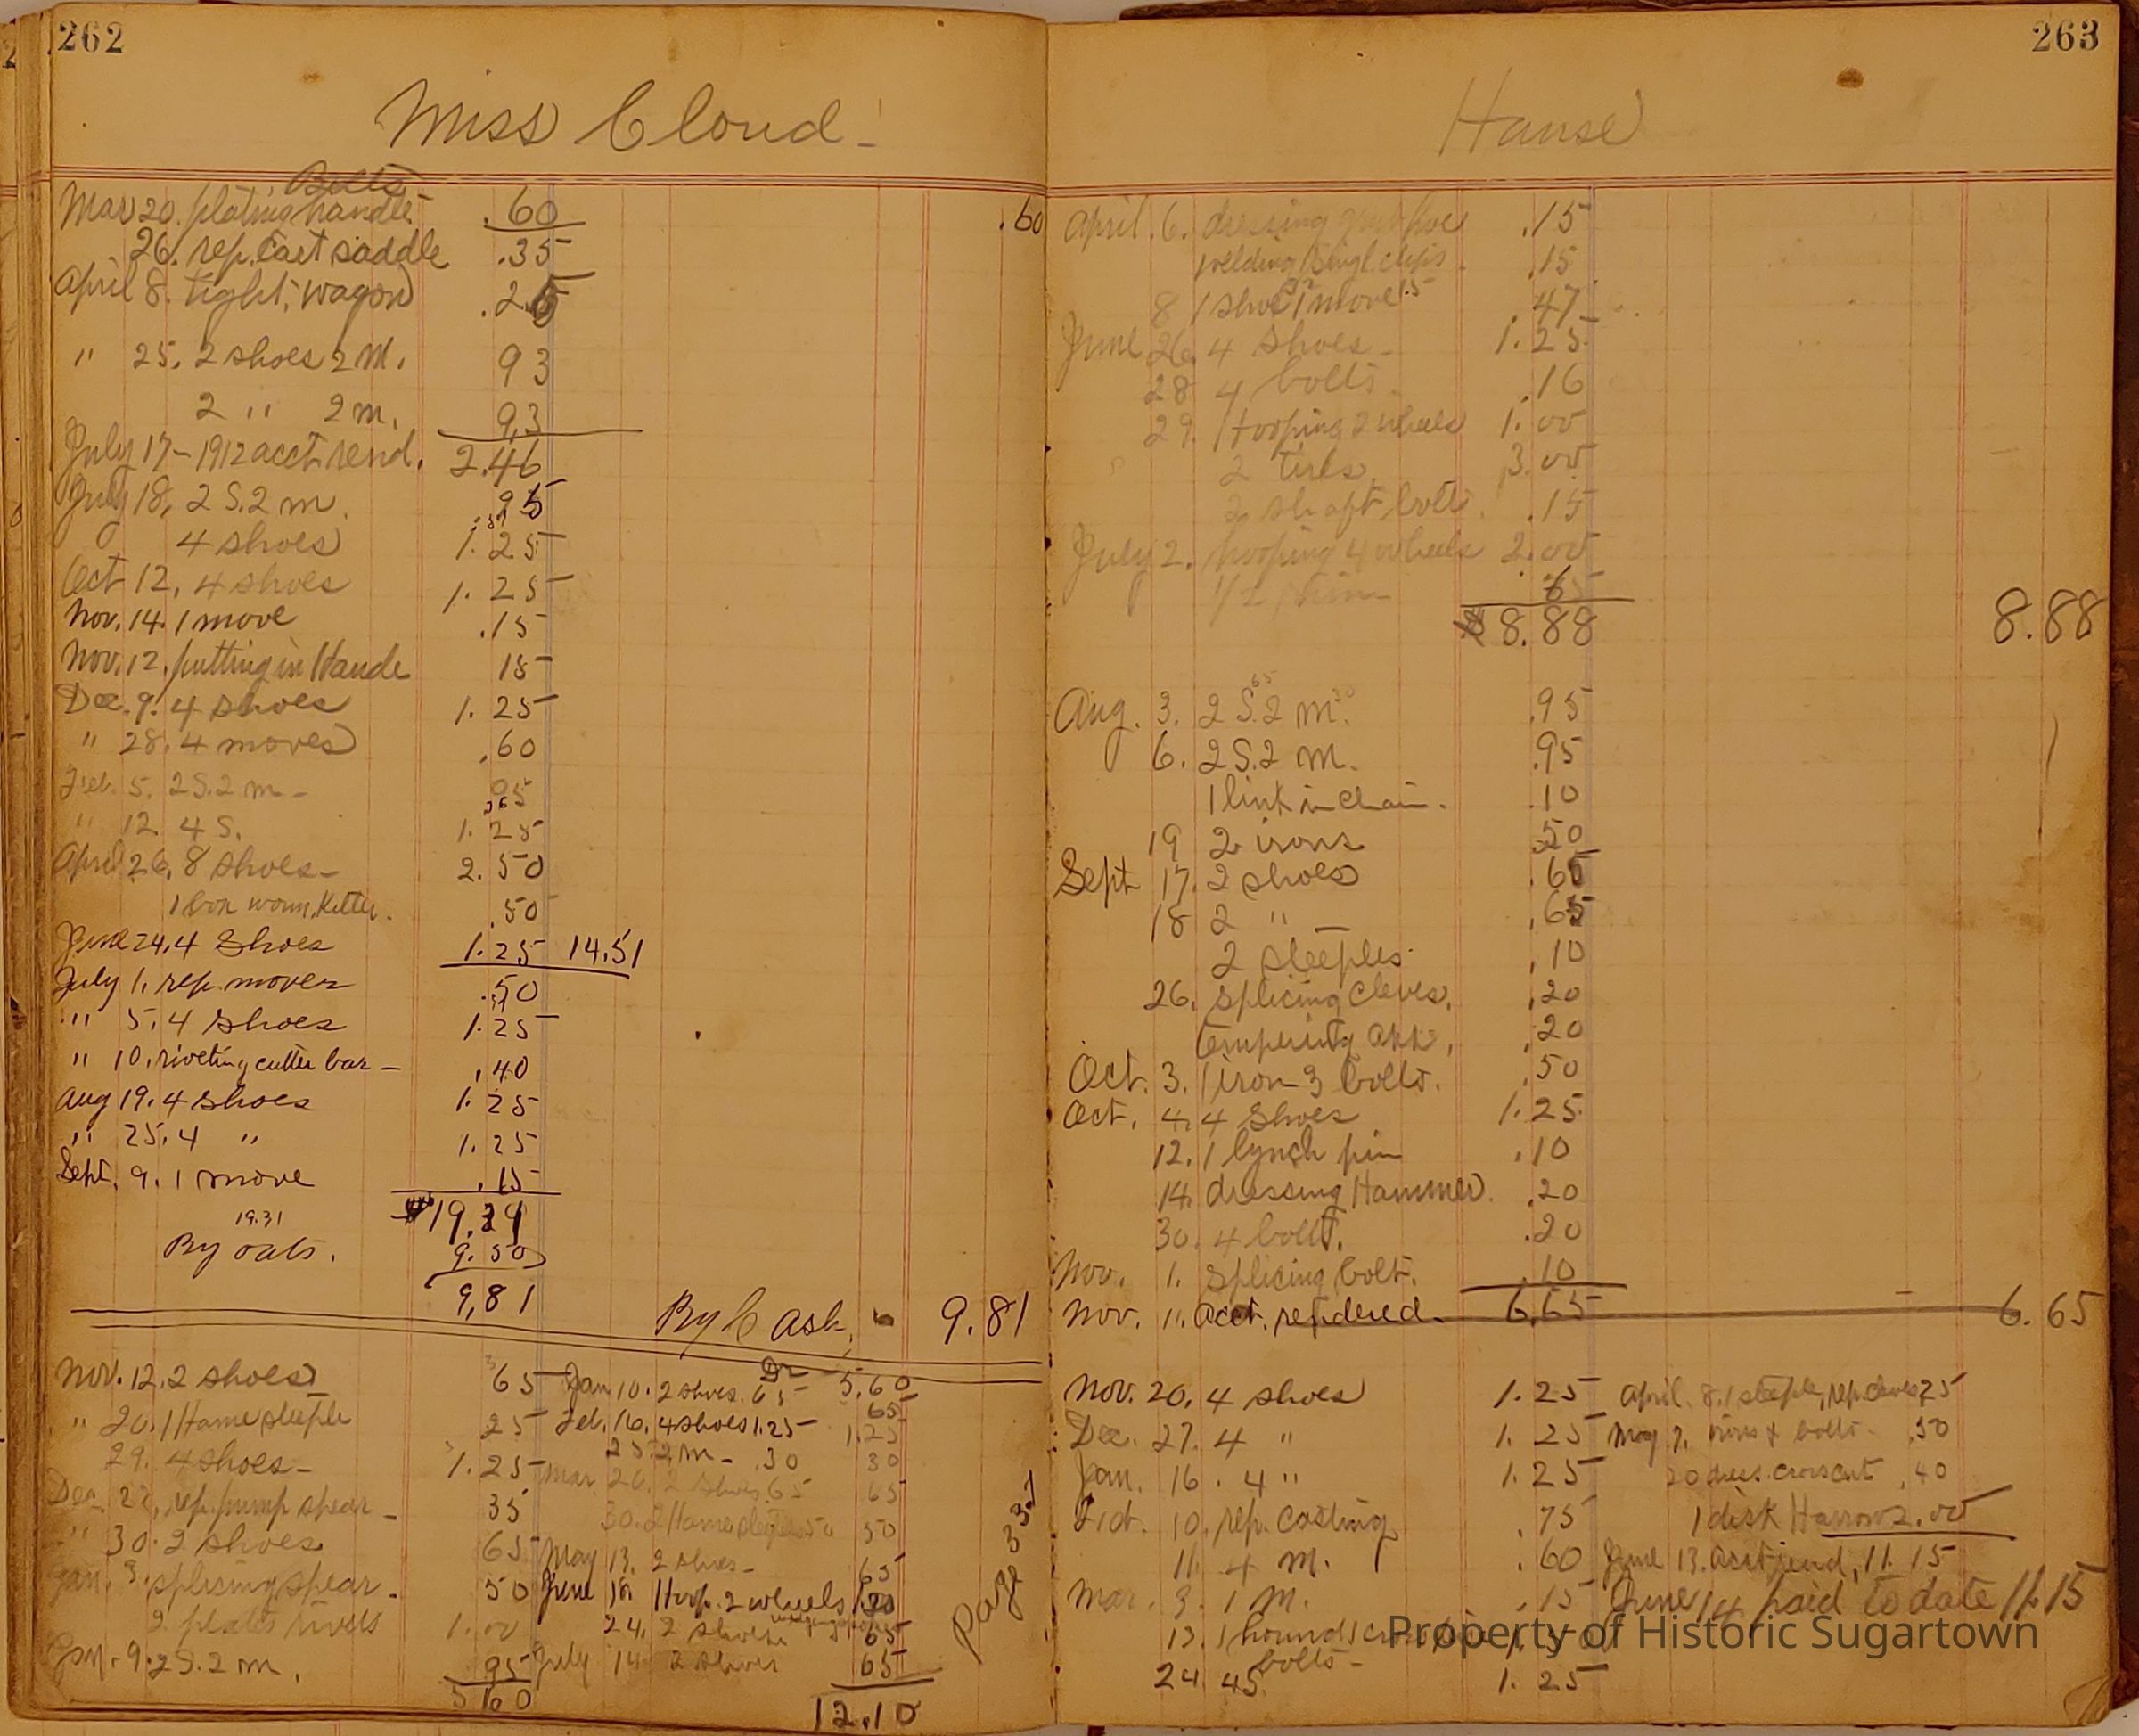 262
Miss Cloud
Bolts
Mar 20. plating handle .60 .60
26. rep. Cart saddle .35
April 8. tight. wagon .25
" 25. 2 shoes 2 m. 93
2 " 2 m. 93
July 17 - 1912 acct. rend. 2.46
July 18, 2 S. 2 m. .95
4 shoes 1.25
Oct 12, 4 shoes 1.25
Nov. 14. 1 move .15
Nov. 12. putting in Hande 15
Dec. 9. 4 shoes 1.25
" 28. 4 moves .60
Feb. 5. 2 S. 2 m - 95
" 12. 4 S. 1.25
April 26. 8 shoes - 2.50
.50
June 24. 4 Shoes 1.25 14.51
July 1. rep. mover .50
" 5. 4 Shoes 1.25
" 10. riveting cutter bar - .40
Aug 19. 4 Shoes 1.25
" 25. 4 " 1.25
Sept. 9. 1 move .15
19.31
By oats. 9.50
9,81 By Cash, 9.81
Nov. 12. 2 shoes 65
" 20. 1 Hame steeple 25
29. 4 shoes - 1.25
Dec. 27, rep. pump spear - 35
" 30. 2 shoes 65
Jan. 3. splicing spear - 50
2 plates rivets 1.00
Jan. 9. 2 S. 2 m. 95
5 60
Jan 10. 2 shoes. 65 5.60
65
Feb. 16. 4 shoes 1.25 1.25
2 m - .30 30
Mar 26. 2 shoes 65 65
30. 2 Hame steeples 50 50
May 13. 2 shoes - 65
June Hoop. 2 wheels
24. 2 shoes 65
July 14 2 shoes 65
12.10
Page 331
263
Hause
April. 6. dressing grub hoe .15
welding singl. clips .15
8 1 shoe 1 move 15 .47
June 26. 4 Shoes - 1.25
28 4 bolts. .16
29. Hooping 2 wheels 1.00
2 tires 3.00
2 shaft bolts .15
July 2. hooping 4 wheels 2.00
$8.88 8.88
Aug. 3. 2 S. 2 m. .95
6. 2 S. 2 m. .95
1 link in Chain. .10
19 2 irons .50
Sept 17. 2 shoes .65
18 2 " .65
2 steeples .10
26. splicing Cleves. .20
.20
Oct. 3. 1 iron 3 bolts. .50
Oct. 4. 4 Shoes 1.25
12. 1 lynch pin .10
14. dressing Hammer. .20
30. 4 bolt. .20
Nov. 1. splicing bolt. .10
Nov. 11. Acct. rendered - 6.65 6.65
Nov. 20. 4 shoes 1.25
Dec. 27. 4 " 1.25
Jan. 16. 4 " 1.25
10. rep. casting .75
11. 4 m. .60
Mar. 3. 1 m. .15
bolts -
24. 4 S. 1.25
April. 8. 1 steeple, rep. cleves 25
May 7. irons & bolts - .50
20 dress. croscut .40
1 disk Harrow 2.00
June 13. acct rend. 11.15
June 14 paid to date 11.15
Property of Historic Sugartown